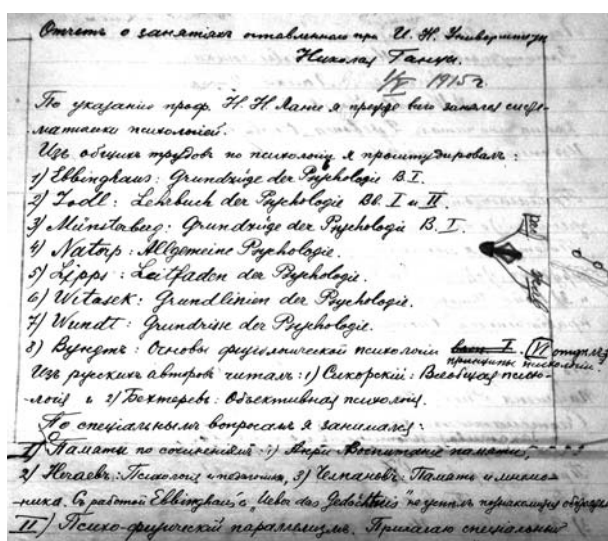 Отчетъ о занятіяхъ оставленнаго при И. Н. Университетѣ
Николая Ганцы.
1/V 1915 г.
По указанію проф. Н. Н. Ланге я прежде всего занялся систе-
матической психологіей.
Изъ общихъ трудовъ по психологіи я проштудировалъ:
1) Ebbinghaus: Grundzüge der Psychologie B. I.
2) Jodl: Lehrbuch der Psychologie Bd. I и II
3) Münsterberg: Grundzüge der Psychologie B. I.
4) Natorp: Allgemeine Psychologie.
5) Lipps: Leitfaden der Psychologie.
6) Witasek: Grundlinien der Psychologie.
7) Wundt: Grundriss der Psychologie.
8) Вундтъ: Основы физіологической психологіи I. VI отдѣлъ
принципы психологіи.
Изъ русскихъ авторовъ читалъ: 1) Сикорскій: Всеобщая психо-
логія и 2) Бехтеревъ: Объективная психологія.
По спеціальнымъ вопросамъ я занимался:
I) Памяти по сочиненіямъ: 1) Анри: Воспитаніе памяти,
2) Нечаевъ: Психологія 3) Челпановъ: Память и мнемо-
ника. Съ работой Ebbinghaus'a „Ueber das Gedächtnis" не успѣлъ познакомиться
II) Психо-физическій параллелизмъ. Прилагаю спеціальный